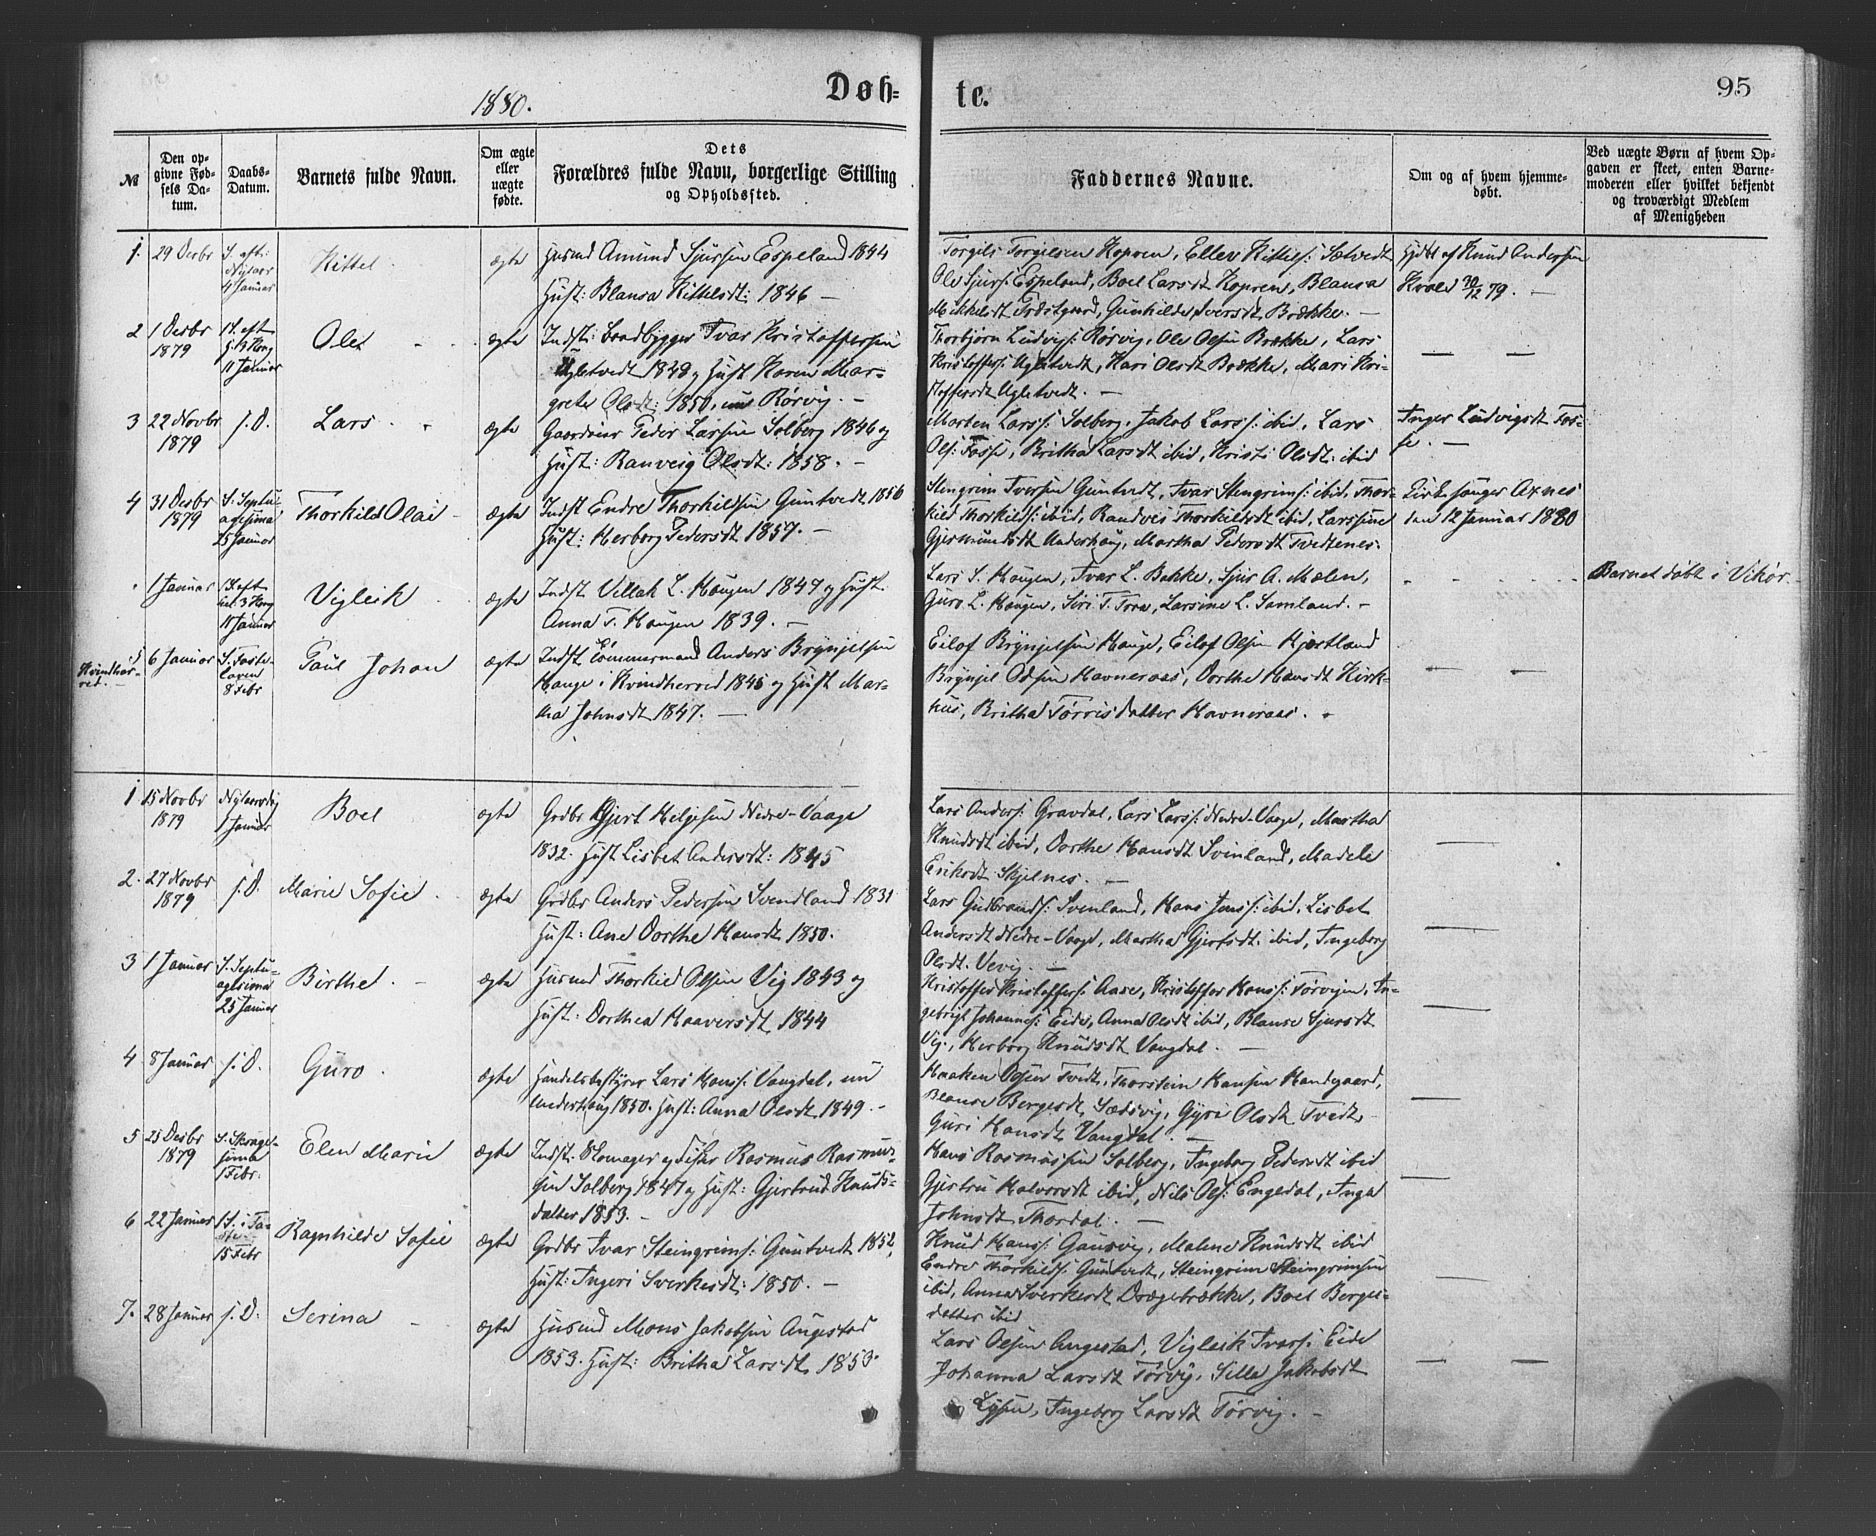 1880.
Døb-
te.
95
№
Den op-
givne Fød-
sels Da-
tum.
Daabs-
Datum.
Barnets fulde Navn.
Om ægte
eller
uægte
fødte.
Dets
Forældres fulde Navn, borgerlige Stilling
og Opholdssted.
Faddernes Navne.
Om og af hvem hjemme-
døbt.
Ved uægte Børn af hvem Op-
gaven er skeet, enten Barne-
moderen eller hvilket bekjendt
og troværdigt Medlem
af Menigheden
1. 29 Decbr
S. eft:
Nytaar
4 Januar
Kittel
ægte
Husmd Amund Sjursen Espeland 1844
Hust: Blansa Kittelsdt: 1846 —
Torgils Torgilsen Kopren, Ellev Kittels: Sætvedt
Ole Sjurs: Espeland, Boel Larsdt Kopren, Blansa
Mikkelsdt Trdstgaard, Gunhilde Iversdt Brække. —
Hjdt af Knud Andersen
Kvale 30/12 79. —
2 1 Decbr
1879
1 S. eft
H. 3 Kong
11 Januar
Olei
ægte
Indst: Baadbygger Ivar Kristoffersen
Ugletvedt 1848 og Hust Karen Mar-
grete Olsdt: 1850, nu Rørvig. —
Thorbjørn Ludvigs: Rørvig, Ole Olsen Brække, Lars
Kristoffers: Ugletvedt, Kari Olsdt Brække, Mari Kri-
stoffersdt Ugletvedt. —
3 22 Novbr
1879
s. D.
Lars
ægte
Gaardeier Peder Larsen Solberg 1846 og
Hust: Ranveig Olsdt: 1858. —
Morten Lars: Solberg, Jakob Lars: ibid, Lars
Ols: Fosse, Britha Larsdt ibid, Kristi Olsdt: ibid
Inger Ludvigsdt Fos-
se. —
4 31 Decbr
1879
S. Septu-
agesima
25 Januar
Thorkild Olai
ægte
Indst Endre Thorkildsen Guntvedt 1856
Hust: Herborg Pedersdt 1857. —
Stengrim Iversen Guntvedt, Ivar Stengrims: ibid, Thor-
kild Thorkilds: ibid, Randvei Thorkildsdt ibid, Larssine
Gjermundsdt Underhaug, Martha Pedersdt Tvedtenes.
Kirkesanger Axnes
den 12 Januar 1880
1 Januar
1 S. eft
hel. 3 Kong
11 Januar
Vigleik
ægte
Indst Villak L. Haugen 1847 og Hust.
Anna T. Haugen 1839. —
Lars S. Haugen, Ivar L. Bakke, Sjur A. Mælen,
Guro L. Haugen, Siri T. Tore, Larsine L. Samland. —
Barnet døbt i Vikør.
i
Kvindher-
red. —
6 Januar
S. Faste-
laven
8 Febr
Paul Johan
ægte
Indst Tømmermand Anders Brynjelsen
Hauge i Kvindherred 1845 og Hust Mar-
tha Johnsdt 1847. —
Eilof Brynjelsen Hauge, Eilof Olsen Hjortland
Brynjel Odsen Havneraas, Dorthe Hansdt Kirk-
hus, Britha Torrisdatter Havneraas.
1 15 Novbr
1879
Nytaarsdag
1 Januar
Boel
ægte
Grdbr Gjert Helgesen Nedre-Vaage
1832. Hust Lisbet Andersdt: 1845
Lars Anders: Gravdal, Lars Lars: Nedre-Vaage, Martha
Knudsdt ibid, Dorthe Hansdt Svinland, Madele
Eriksdt Skjelnes. —
2. 27 Novbr
1879
s. D.
Marie Sofie
ægte
Grdbr Anders Pedersen Svendland 1831
Hust: Ane Dorthe Hansdt 1850.
Lars Gudbrands: Svenland, Hans Jens: ibid, Lisbet
Andersdt Nedre-Vaage, Martha Gjertsdt. ibid, Ingeborg
Olsdt. Vevig. —
3 1 Januar
S. Septu-
agesima
25 Januar
Birthe
ægte
Husmd Thorkild Olsen Vig 1843 og
Hust: Dorthea Haaversdt 1844
Kristoffer Kristoffers: Aase, Kristoffer Hans: Tørvigen, In-
gebrigt Johannes: Eide, Anna Olsdt ibid, Blansе Sjursdt
Vig., Herborg Knudsdt Vangdal. —
4 8 Januar
s. D.
Guro
ægte
Handelsbestyrer Lars Hans: Vangdal, nu
Underhaug 1850. Hust: Anna Olsdt 1849. —
Haaken Olsen Tvedt, Thorstein Hansen Handegaard,
Blanse Bergesdt Sædsvig, Gyri Olsdt Tvedt
Guri Hansdt Vangdal. —
5 23 Decbr
1879
S. Sexage-
sima
1 Febr.
Elen Marie
ægte
Indst. Skomager og Fisker Rasmus Rasmus-
sen Solberg 1847 og Hust: Gjertrud Knuds-
datter 1853. —
Hans Rasmussen Solberg, Ingeborg Pedersdt ibid
Gjertru Halvorsdt ibid, Nils Ols: Engedal, Inga
Johnsdt Thordal. —
6 22 Januar
1 S. i Fa-
ste
15 Febr
Ragnhilde Sofie
ægte
Grdbr Ivar Steingrims: Guntvedt 1852,
Hust: Ingeri Sverkesdt: 1850. —
Knud Hans: Gausvig, Malene Knudsdt ibid
Endre Thorkilds: Guntvedt, Steingrim Steingrimsen
ibid, Anna Sverkesdt Drægebrække, Boel Berges-
datter ibid
7. 28 Januar
s. D.
Serina
ægte
Husmd Mons Jakobsen Augestad
1853. Hust: Britha Larsdt, 1853.
Lars Olsen Augestad, Vigleik Ivars: Eide
Johanna Larsdt Tørvig, Sella Jakobsdt
Lysen, Ingeborg Larsdt Tørvig. —